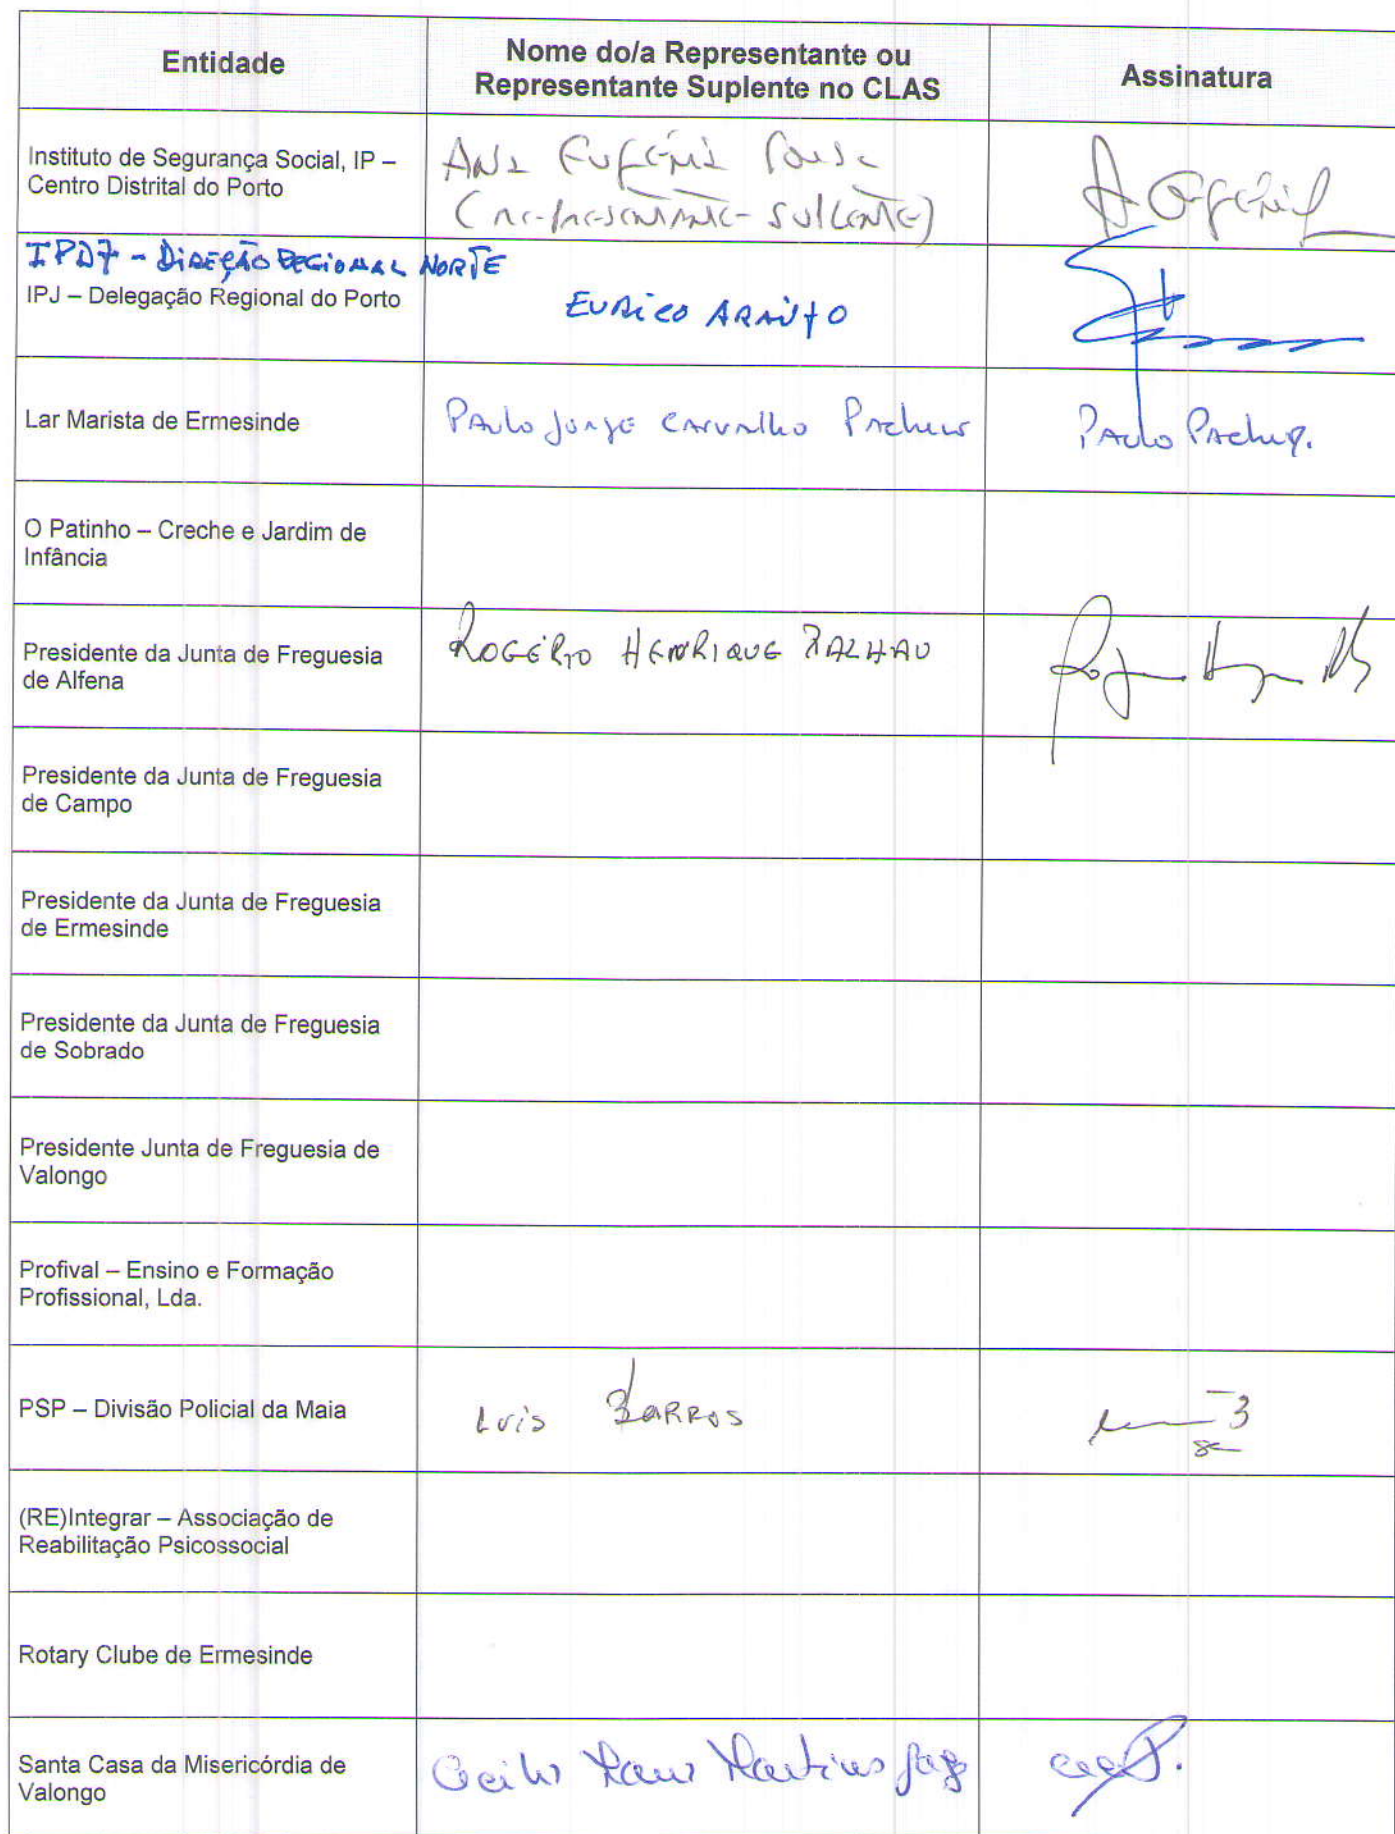 Entidade
Nome do/a Representante ou
Representante Suplente no CLAS
Assinatura
Instituto de Segurança Social, IP –
Centro Distrital do Porto
Ana Eugénia
(representante suplente)
IPDJ - DIREÇÃO REGIONAL NORTE
IPJ – Delegação Regional do Porto
EURICO ARAÚJO
Lar Marista de Ermesinde
Paulo Jorge Carvalho Pacheco
Paulo Pacheco.
O Patinho – Creche e Jardim de
Infância
Presidente da Junta de Freguesia
de Alfena
ROGÉRIO HENRIQUE
Presidente da Junta de Freguesia
de Campo
Presidente da Junta de Freguesia
de Ermesinde
Presidente da Junta de Freguesia
de Sobrado
Presidente Junta de Freguesia de
Valongo
Profival – Ensino e Formação
Profissional, Lda.
PSP – Divisão Policial da Maia
Luís BARROS
(RE)Integrar – Associação de
Reabilitação Psicossocial
Rotary Clube de Ermesinde
Santa Casa da Misericórdia de
Valongo
Martins